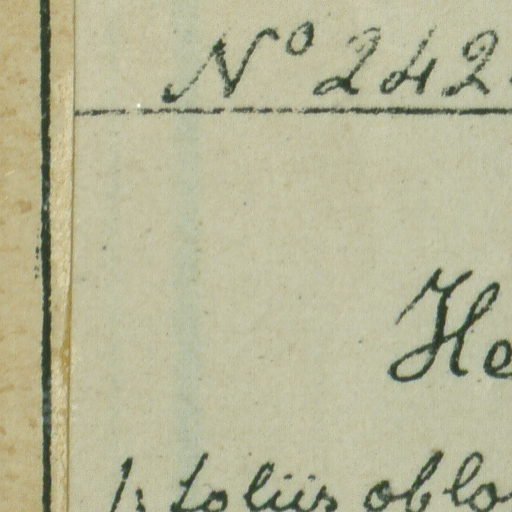 Nº 242
He
foliis oblo